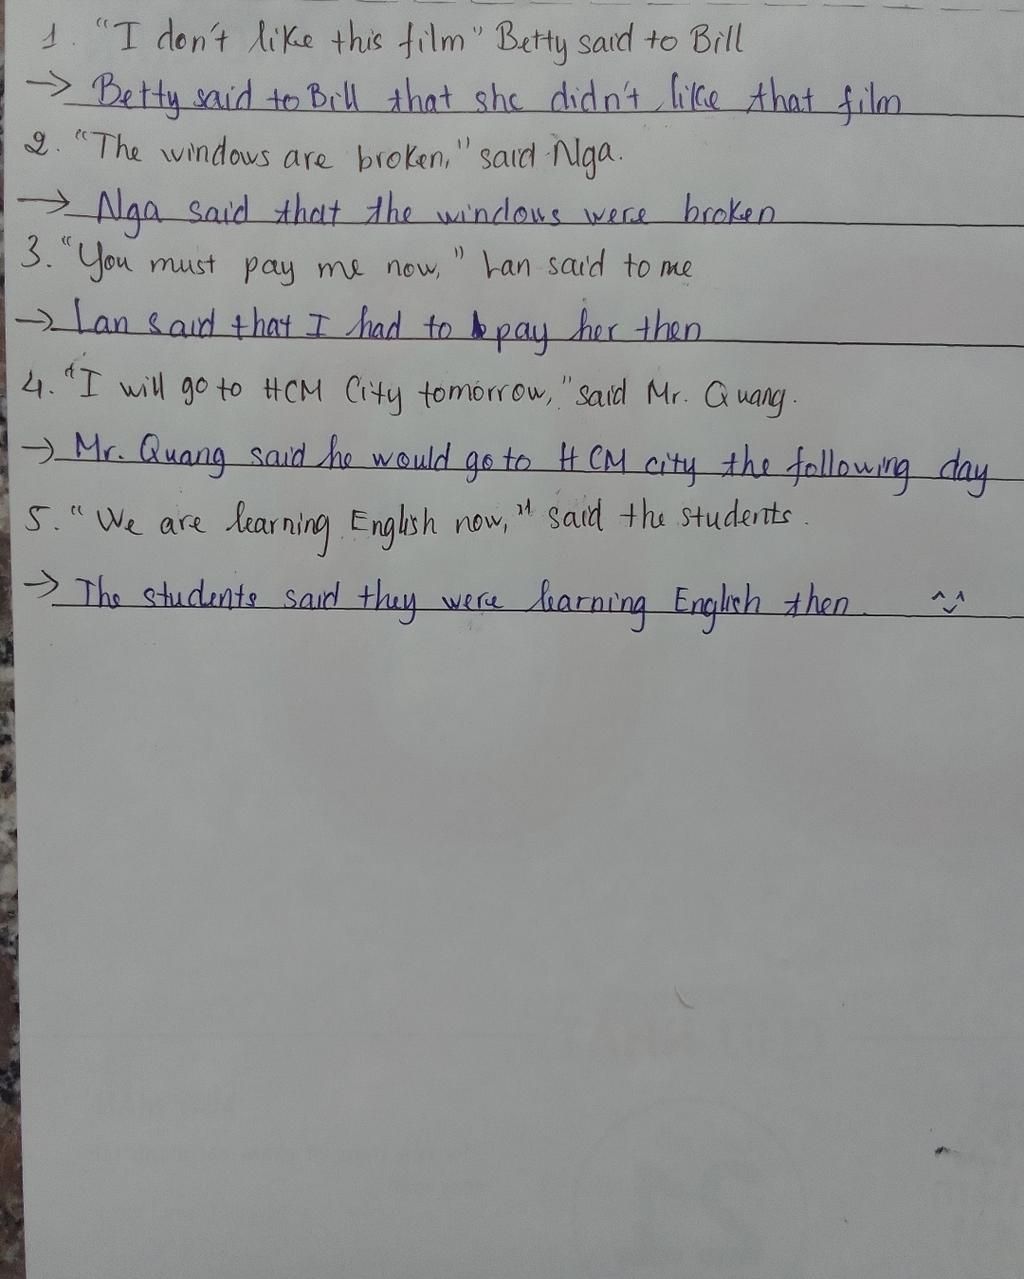 1. "I don't like this film" Betty said to Bill
→ Betty said to Bill that she didn't like that film
2. "The windows are broken," said Nga.
→ Nga said that the windows were broken
3. "You must pay me now," Lan said to me
→ Lan said that I had to pay her then
4. "I will go to HCM City tomorrow," said Mr. Quang.
→ Mr. Quang said he would go to HCM city the following day
5. "We are learning English now," said the students.
→ The students said they were learning English then ^‿^